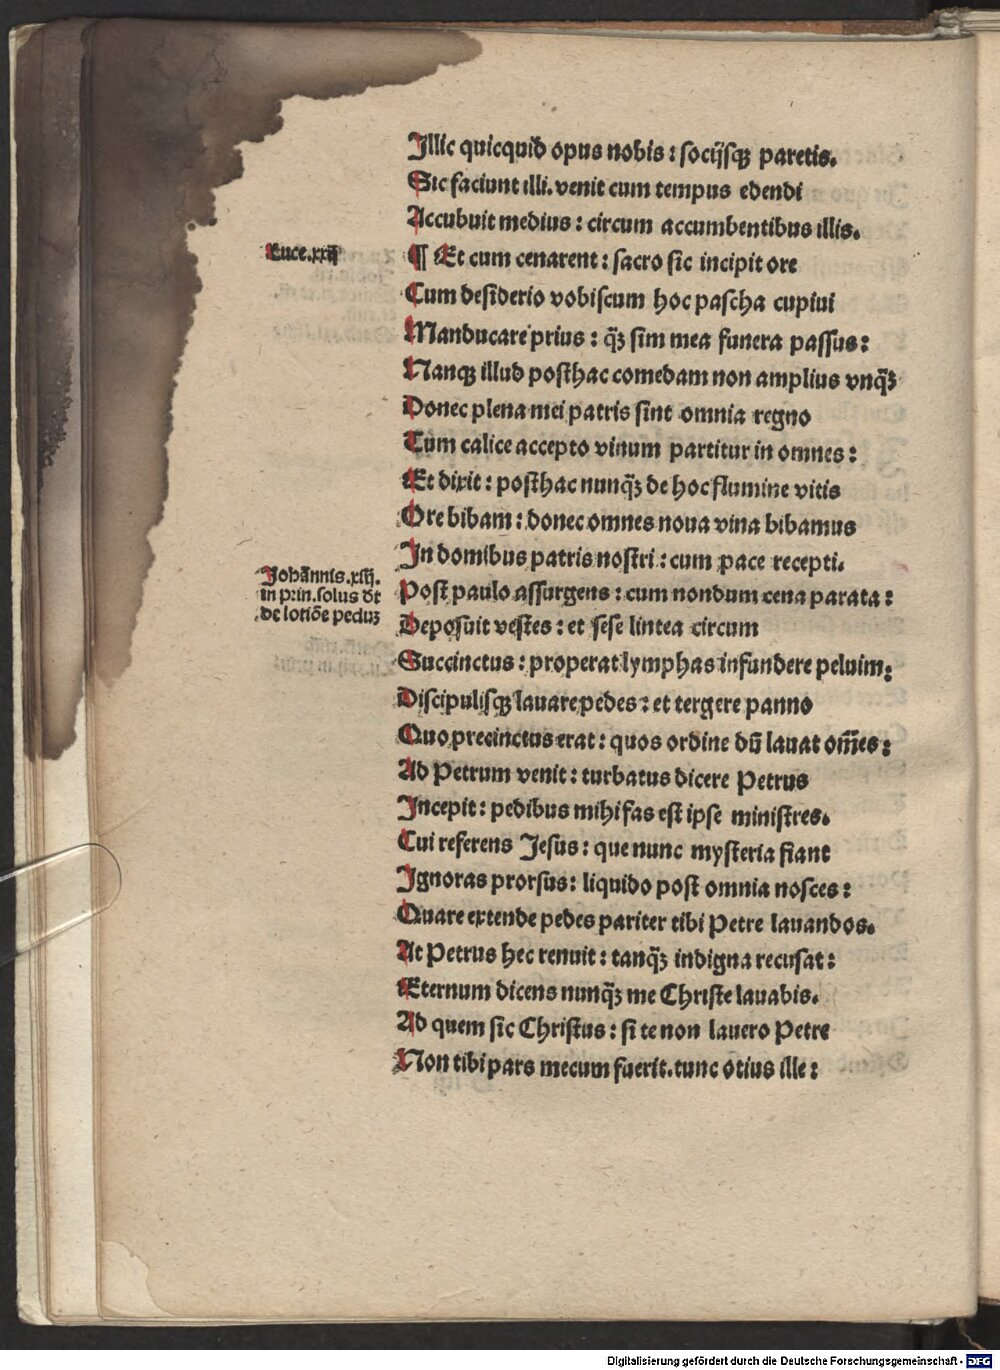 Illic quicquid opus nobis: socijsqꝫ paretis.
Sic faciunt illi. venit cum tempus edendi
Accubuit medius: circum accumbentibus illis.
Luce.xxij
¶ Et cum cenarent: sacro sic incipit ore
Cum desiderio vobiscum hoc pascha cupiui
Manducare prius: q̄ꝫ sim mea funera passus:
Nanqꝫ illud posthac comedam non amplius vnq̄ꝫ
Donec plena mei patris sint omnia regno
Tum calice accepto vinum partitur in omnes:
Et dixit: posthac nunq̄ꝫ de hoc flumine vitis
Ore bibam: donec omnes noua vina bibamus
In domibus patris nostri: cum pace recepti.
Johānnis.xiij.
in prin. solus vt
de lotiōe peduꝫ
Post paulo assurgens: cum nondum cena parata:
Deposuit vestes: et sese lintea circum
Succinctus: properat lymphas infundere peluim:
Discipulisqꝫ lauare pedes: et tergere panno
Quo precinctus erat: quos ordine dū lauat om̄es:
Ad Petrum venit: turbatus dicere Petrus
Incepit: pedibus mihi fas est ipse ministres.
Cui referens Jesus: que nunc mysteria fiant
Ignoras prorsus: liquido post omnia nosces:
Quare extende pedes pariter tibi Petre lauandos.
At Petrus hec renuit: tanq̄ꝫ indigna recusat:
Eternum dicens nunq̄ꝫ me Christe lauabis.
Ad quem sic Christus: si te non lauero Petre
Non tibi pars mecum fuerit. tunc otius ille:
Digitalisierung gefördert durch die Deutsche Forschungsgemeinschaft - DFG